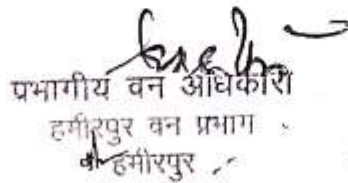 प्रभागीय वन अधिकारी
हमीरपुर वन प्रभाग
हमीरपुर